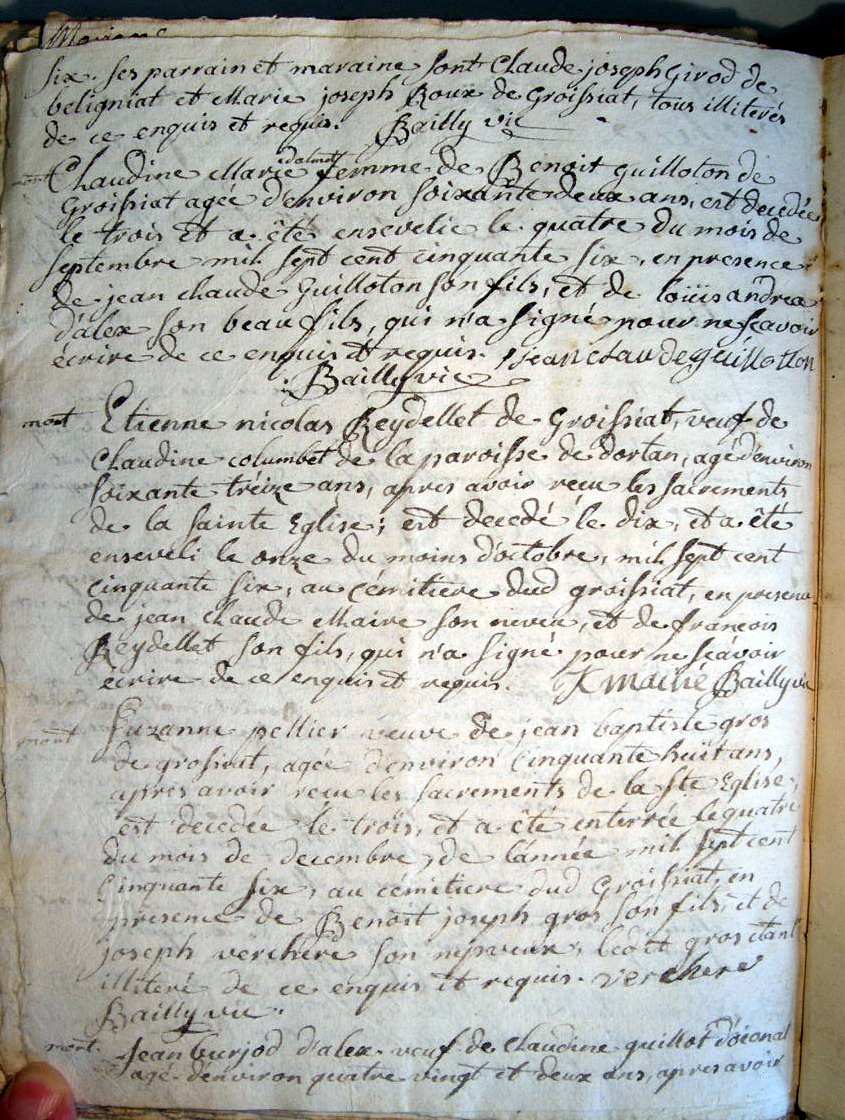 six. ses parrain et maraine sont Claude joseph Girod de
beligniat et Marie joseph Roux de Groissiat, tous illiterés
de ce enquis et requis. Bailly vic
mort
Claudine Marie femme de Benoit guilloton de
Groissiat agée d'environ soixante deux ans, est decedée
le trois et a été ensevelie le quatre du mois de
septembre mil sept cent cinquante six, en presence
de jean claude Guilloton son fils, et de loüis andrea
d'alex son beau fils, qui n'a signé pour ne scavoir
écrire de ce enquis et requis. jean claude guilloton
Bailly vic
mort Etienne nicolas Reydellet de Groissiat, veuf de
Claudine columbet de la paroisse de dortan, agé d'environ
soixante tréize ans, apres avoir recu les sacrements
de la sainte Eglise; est decedé le dix, et a été
enseveli le onze du moins d'octobre, mil sept cent
cinquante six, au cémitiere dud groissiat, en presence
de jean claude Maire son neveu, et de françois
Reydellet son fils, qui n'a signé pour ne scávoir
écrire de ce enquis et requis. Bailly vic
mort
Suzanne pellier veuve de jean baptiste gros
de grosiat, agée d'environ cinquante huit ans,
apres avoir recu les sacrements de la ste Eglise,
est decedée le trois, et a été enterrée le quatre
du mois de decembre, de l'année mil sept cent
cinquante six, au cémetiere dud Groissiat, en
presence de Benoit joseph gros son fils, et de
joseph verchere son nepveux, led gros etant
illiteré de ce enquis et requis. verchere
Bailly vic.
mort. Jean burjod d'alex veuf de claudine guillot d'oionat
agé d'environ quatre vingt et deux ans, apres avoir